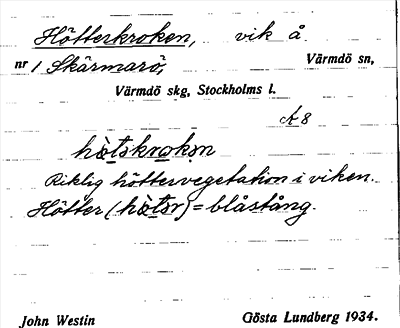 Hötterkroken, vik å
nr 1 Skärmarö, Värmdö sn,
Värmdö skg, Stockholms l.
A 8
hö̀tskrokən
Riklig höttervegetation i viken.
Hötter (hö̀tər) = blåstång.
John Westin Gösta Lundberg 1934.